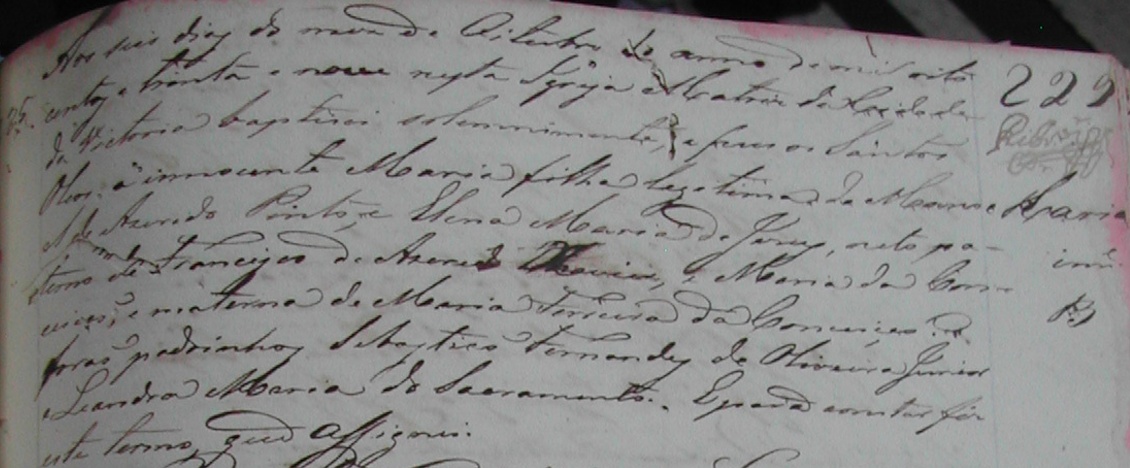 Aos seis dias do mes de Outubro do anno de mil oito
centos e trinta e nove nesta Igreja Matriz da Cidade
da Victoria baptisei solemnimente, e pus os Santos
Oleos á innocente Maria filha legitima de Manoel
de Azeredo Pinto, e Elena Maria de Jesus, neta pa-
terna de Francisco de Azeredo, e Maria da Con-
ceição, e materna de Maria Ferreira da Conceição.
foraõ padrinhos Sebastiaõ Fernandes de Oliveira Junior
e Leandra Maria do Sacramento. E para constar fiz
este termo, que assignei.
229
Maria
inn.